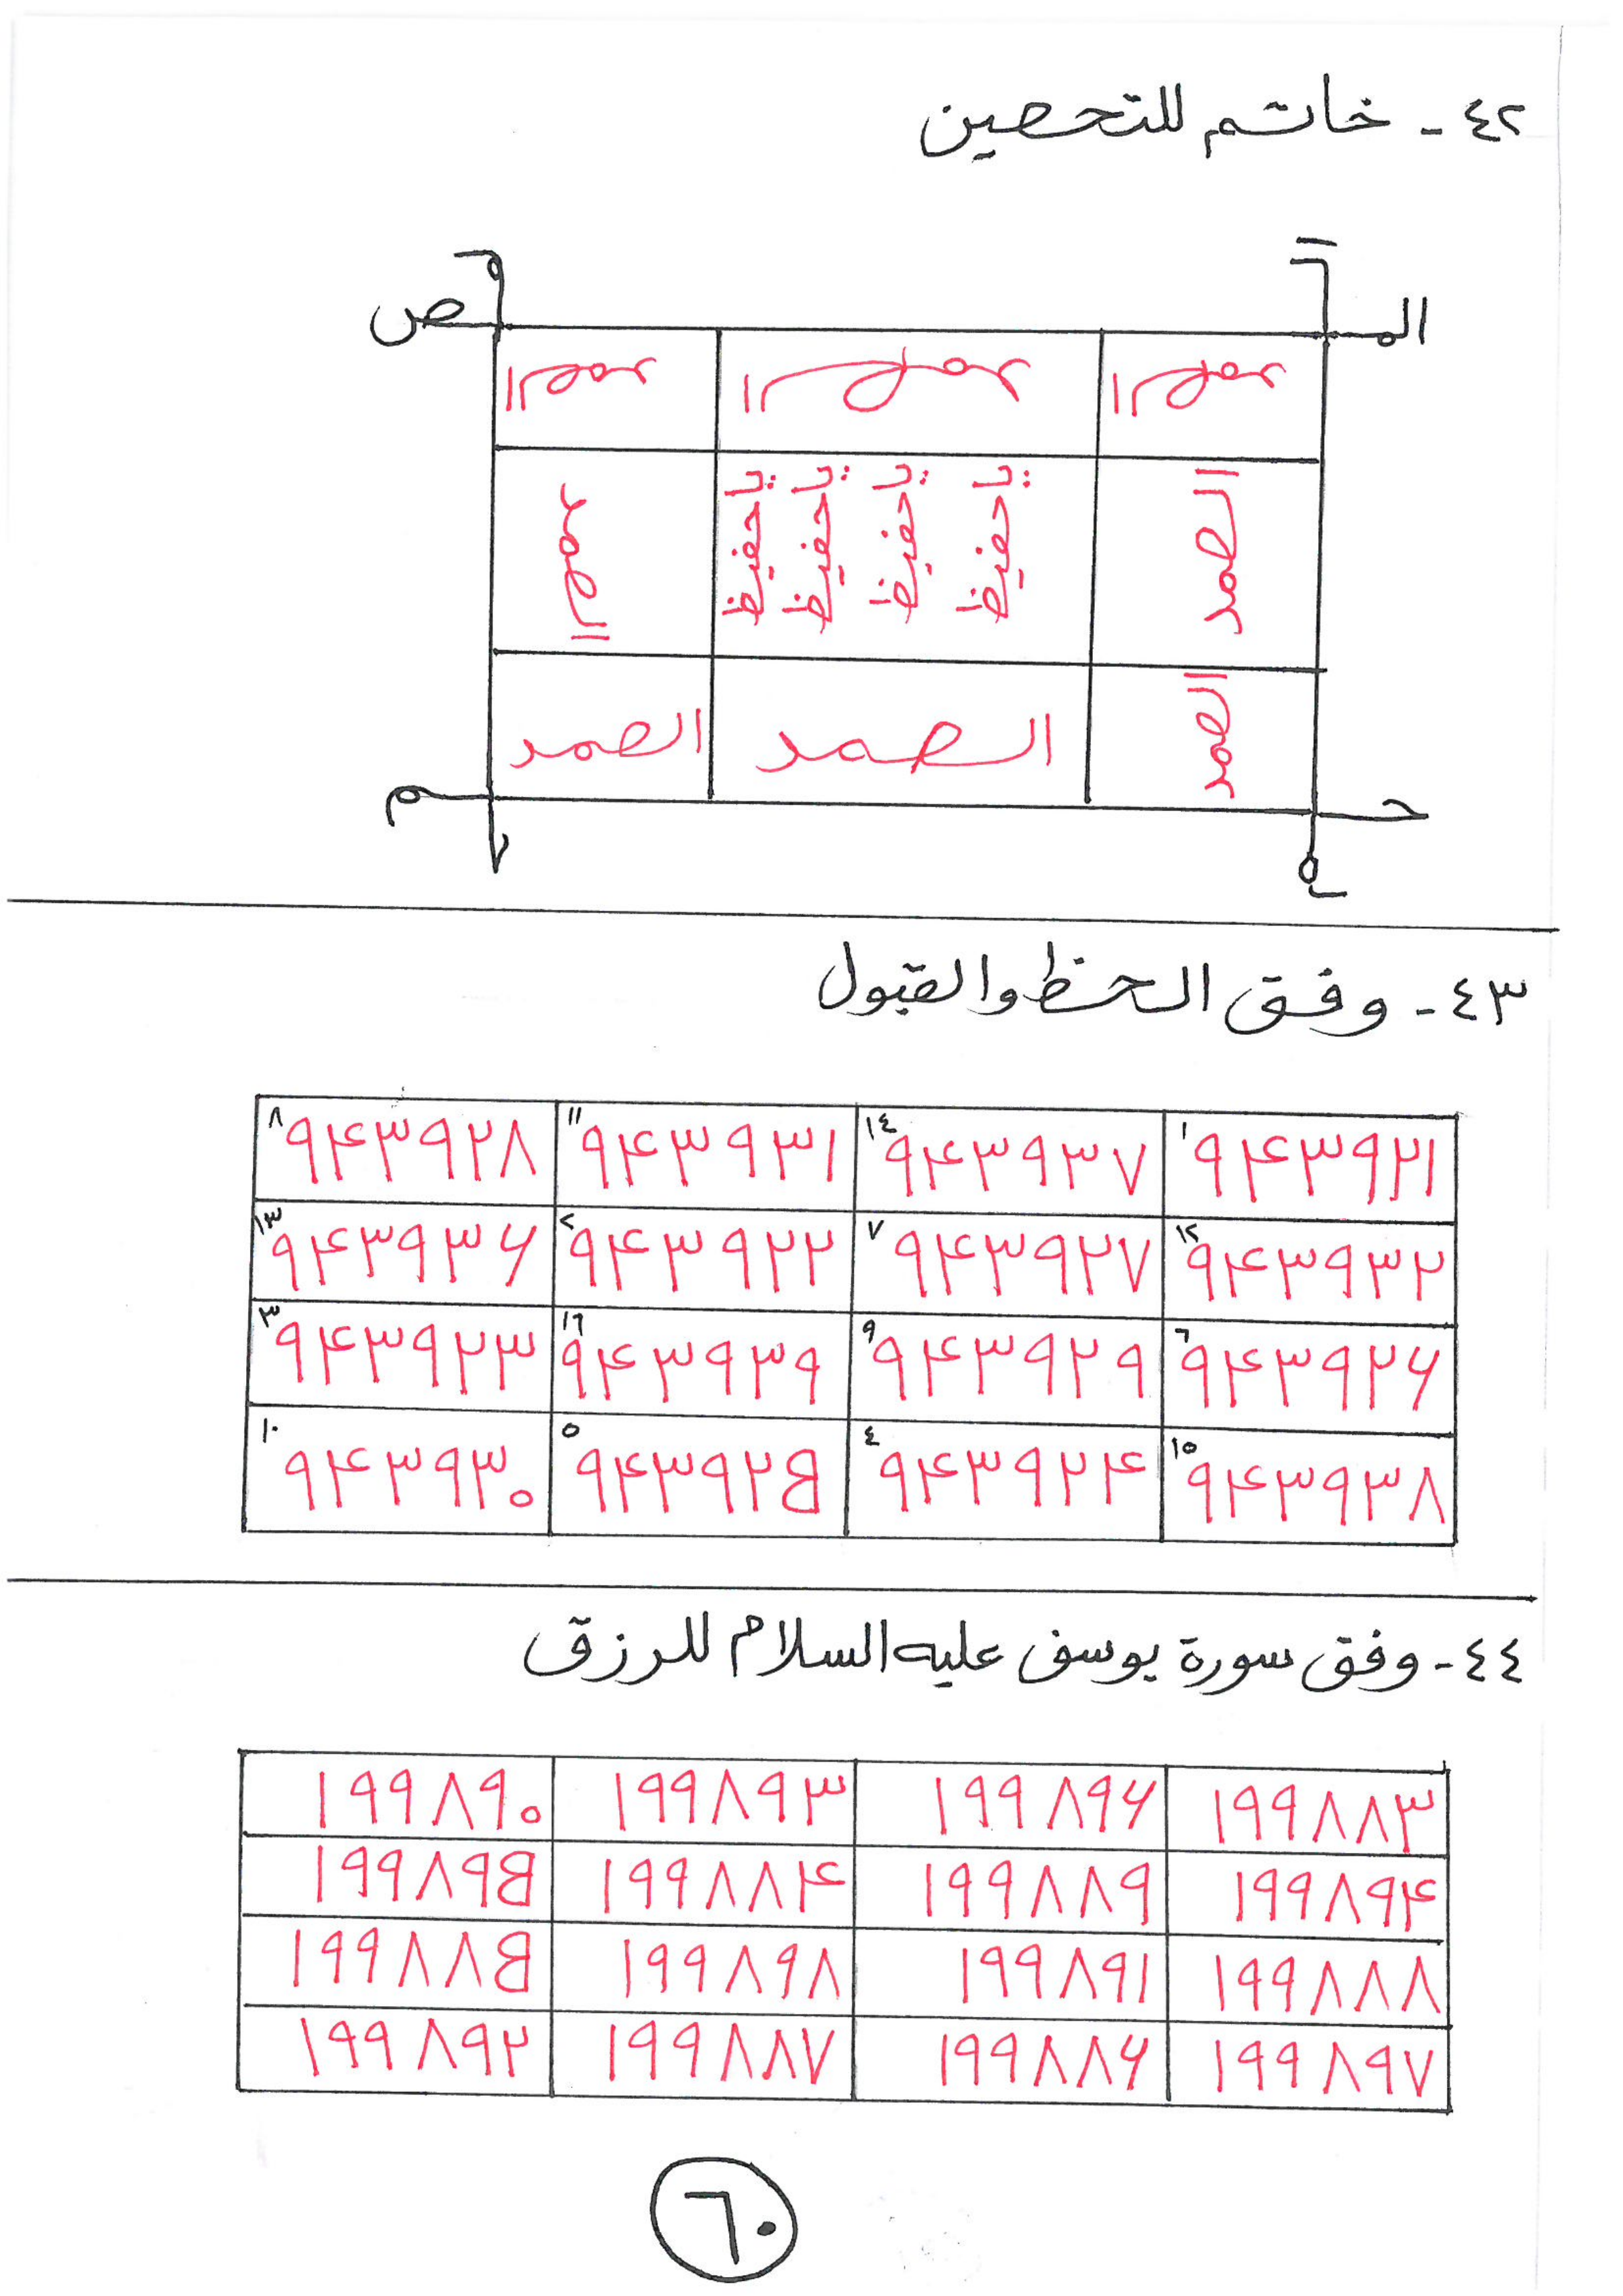 ٤٢ - خاتم للتحصين
الم
ص
الصمد الصمد الصمد
الصمد يا حفيظ يا حفيظ يا حفيظ يا حفيظ الصمد
الصمد الصمد الصمد
حـ
م
٤٣ - وفق الحظ والقبول
٨ ٩٤٣٩٢٨ ١١ ٩٤٣٩٣١ ١٤ ٩٤٣٩٣٧ ١ ٩٤٣٩٢١
١٣ ٩٤٣٩٣٦ ٢ ٩٤٣٩٢٢ ٧ ٩٤٣٩٢٧ ١٢ ٩٤٣٩٣٢
٣ ٩٤٣٩٢٣ ١٦ ٩٤٣٩٣٩ ٩ ٩٤٣٩٢٩ ٦ ٩٤٣٩٢٦
١٠ ٩٤٣٩٣٠ ٥ ٩٤٣٩٢٥ ٤ ٩٤٣٩٢٤ ١٥ ٩٤٣٩٣٨
٤٤ - وفق سورة يوسف عليه السلام للرزق
١٩٩٨٩٠ ١٩٩٨٩٣ ١٩٩٨٩٦ ١٩٩٨٨٣
١٩٩٨٩٥ ١٩٩٨٨٤ ١٩٩٨٨٩ ١٩٩٨٩٤
١٩٩٨٨٥ ١٩٩٨٩٨ ١٩٩٨٩١ ١٩٩٨٨٨
١٩٩٨٩٢ ١٩٩٨٨٧ ١٩٩٨٨٦ ١٩٩٨٩٧
٦٠